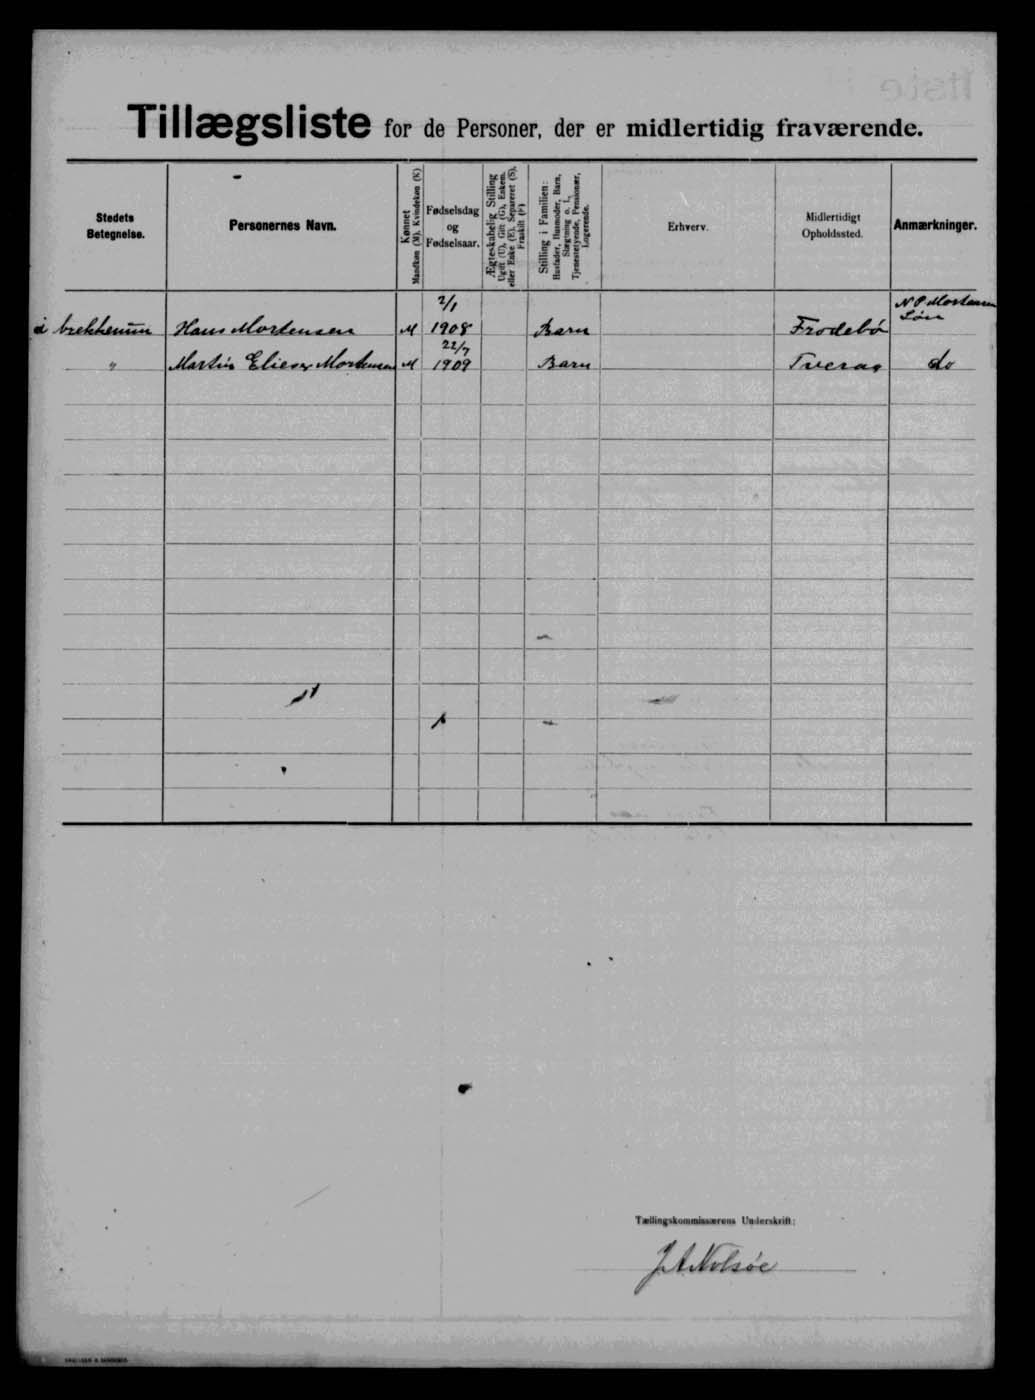 Tillægsliste for de Personer, der er midlertidig fraværende.
Stedets Betegnelse.
Personernes Navn.
Kønnet
Mandkøn (M), Kvindekøn (K)
Fødselsdag og Fødselsaar.
Ægteskabelig Stilling
Ugift (U), Gift (G), Enkem. eller Enke (E), Separeret (S), Fraskilt (F)
Stilling i Familien:
Husfader, Husmoder, Barn, Slægtning o. l., Tjenestetyende, Pensionær, Logerende.
Erhverv.
Midlertidigt Opholdssted.
Anmærkninger.
2/1 N P Mortensen
i brekkenum Hans Mortensen M 1908 Barn Frodebø Søn
22/7
" Martin Elieser Mortensen M 1909 Barn Tveraa do
Tællingskommissærens Underskrift:
J A Nolsøe